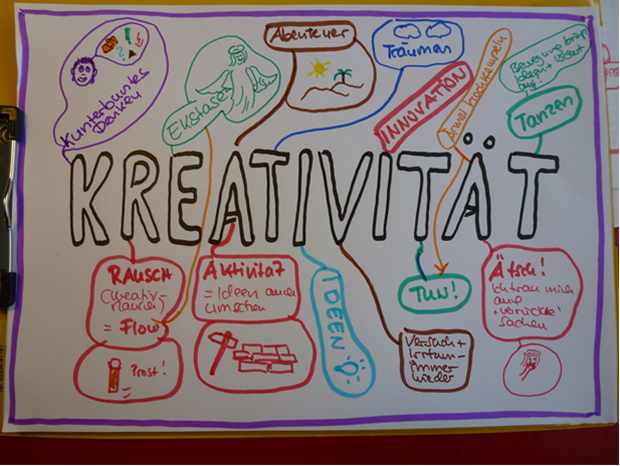 Kunterbuntes
Denken
Ekstase
Abenteuer
Träumen
INNOVATION
Ärmel hochkrempeln
Bewegung bringt
Ideen +
auf
Tanzen
KREATIVITÄT
RAUSCH
(Kreativ-
rausch)
= Flow
Prost!
Aktivität
= Ideen auch
umsetzen
IDEEN
Versuch +
Irrtum -
immer
wieder
TUN!
Ätsch!
Ich trau mich
"verrückte"
Sachen